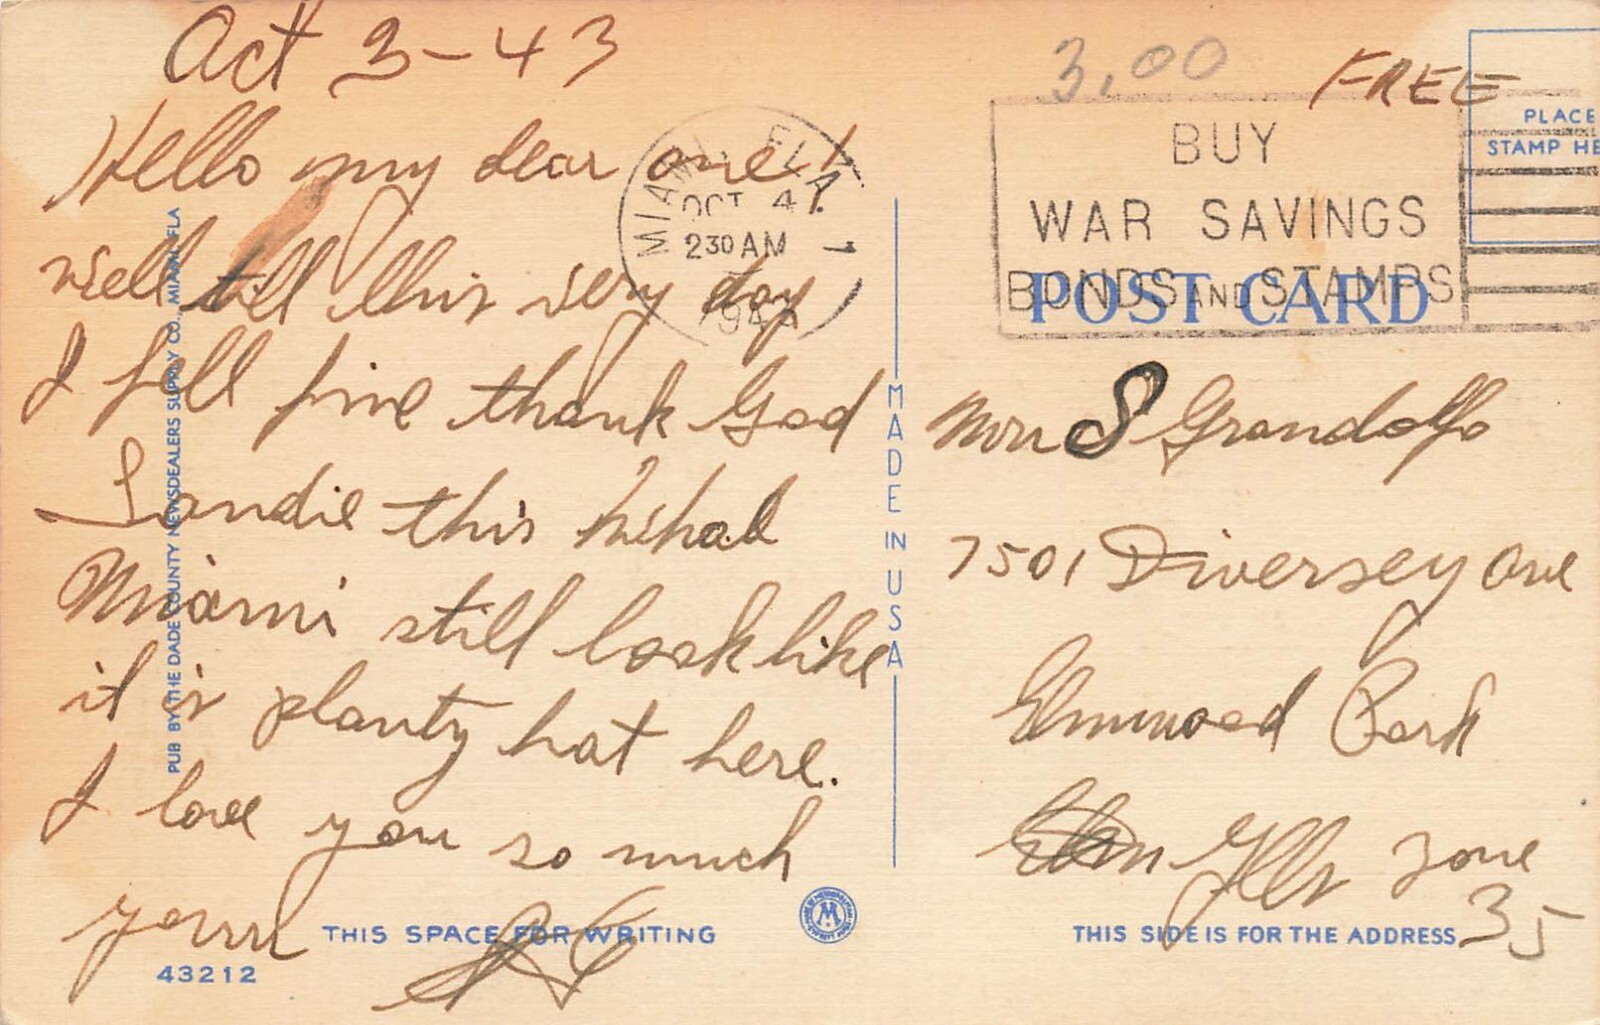 Oct 3-43
Hello my dear one!
well till this very day
I fell fine thank God
Landie this
Miami still look like
it is planty hat here.
I love you so much
your
3.00
FREE
MIAMI, FLA.
OCT 4
230 AM
1943
1
BUY
WAR SAVINGS
BONDS AND STAMPS
PLACE
STAMP HE
POST CARD
Mrs S Grandolfo
7501 Diversey Ave
Elmwood Park
Ills zone
35
PUB BY THE DADE COUNTY NEWSDEALERS SUPPLY CO., MIAMI, FLA
MADE IN USA
THIS SPACE FOR WRITING
M
THIS SIDE IS FOR THE ADDRESS
43212